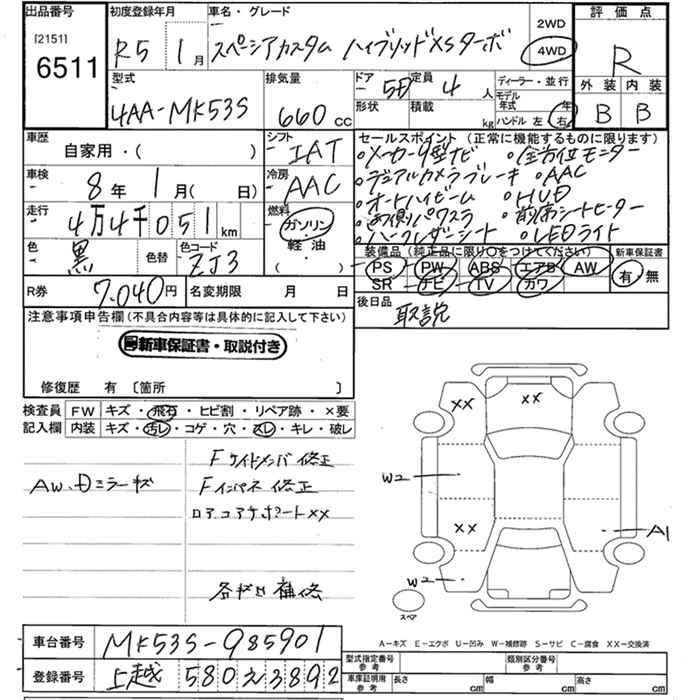 出品番号 初度登録年月 車名・グレード 評価点
[2151]
6511
R5 1月 スペーシアカスタム ハイブリッドXSターボ
2WD
4WD
R
型式 排気量 ドア 定員 ディーラー・並行 外装 内装
4AA-MK53S 660cc 5D 4人 モデル年式 年 B B
形状 積載 kg ハンドル 左 右
車歴 シフト セールスポイント (正常に機能するものに限ります)
自家用・( ) IAT
。メーカー9型ナビ 。全方位モニター
車検 冷房 。デュアルカメラブレーキ 。AAC
8年 1月( 日) AAC 。オートハイビーム 。HUD
走行 燃料
4万4千051km ガソリン 。両側パワスラ 。前席シートヒーター
軽油 。ハーフレザーシート 。LEDライト
色 色替 色コード ( )
黒 ZJ3
装備品 (純正品に限り○をつけてください) 新車保証書
PS PW ABS エアB AW 有 無
SR ナビ TV カワ
R券 7,040円 名変期限 月 日
後日品
取説
注意事項申告欄 (不具合内容等は具体的に記入して下さい)
新車保証書・取説付き
修復歴 有 〔箇所 〕
検査員 FW キズ・飛石・ヒビ割・リペア跡・×要
記入欄 内装 キズ・汚レ・コゲ・穴・スレ・キレ・破レ
Fサイドメンバ 修正
AW、Dミラーキズ Fインパネ 修正
ロア、コアサポート××
補修
×× ××
W2
×× A1
W2
スペア
A-キズ E-エクボ U-凹み W-補修跡 S-サビ C-腐食 XX-交換済
車台番号 MK53S-985901
型式指定番号 参考 類別区分番号 参考
登録番号 上越 580 え 3892
車庫証明用 参考 長さ cm 幅 cm 高さ cm